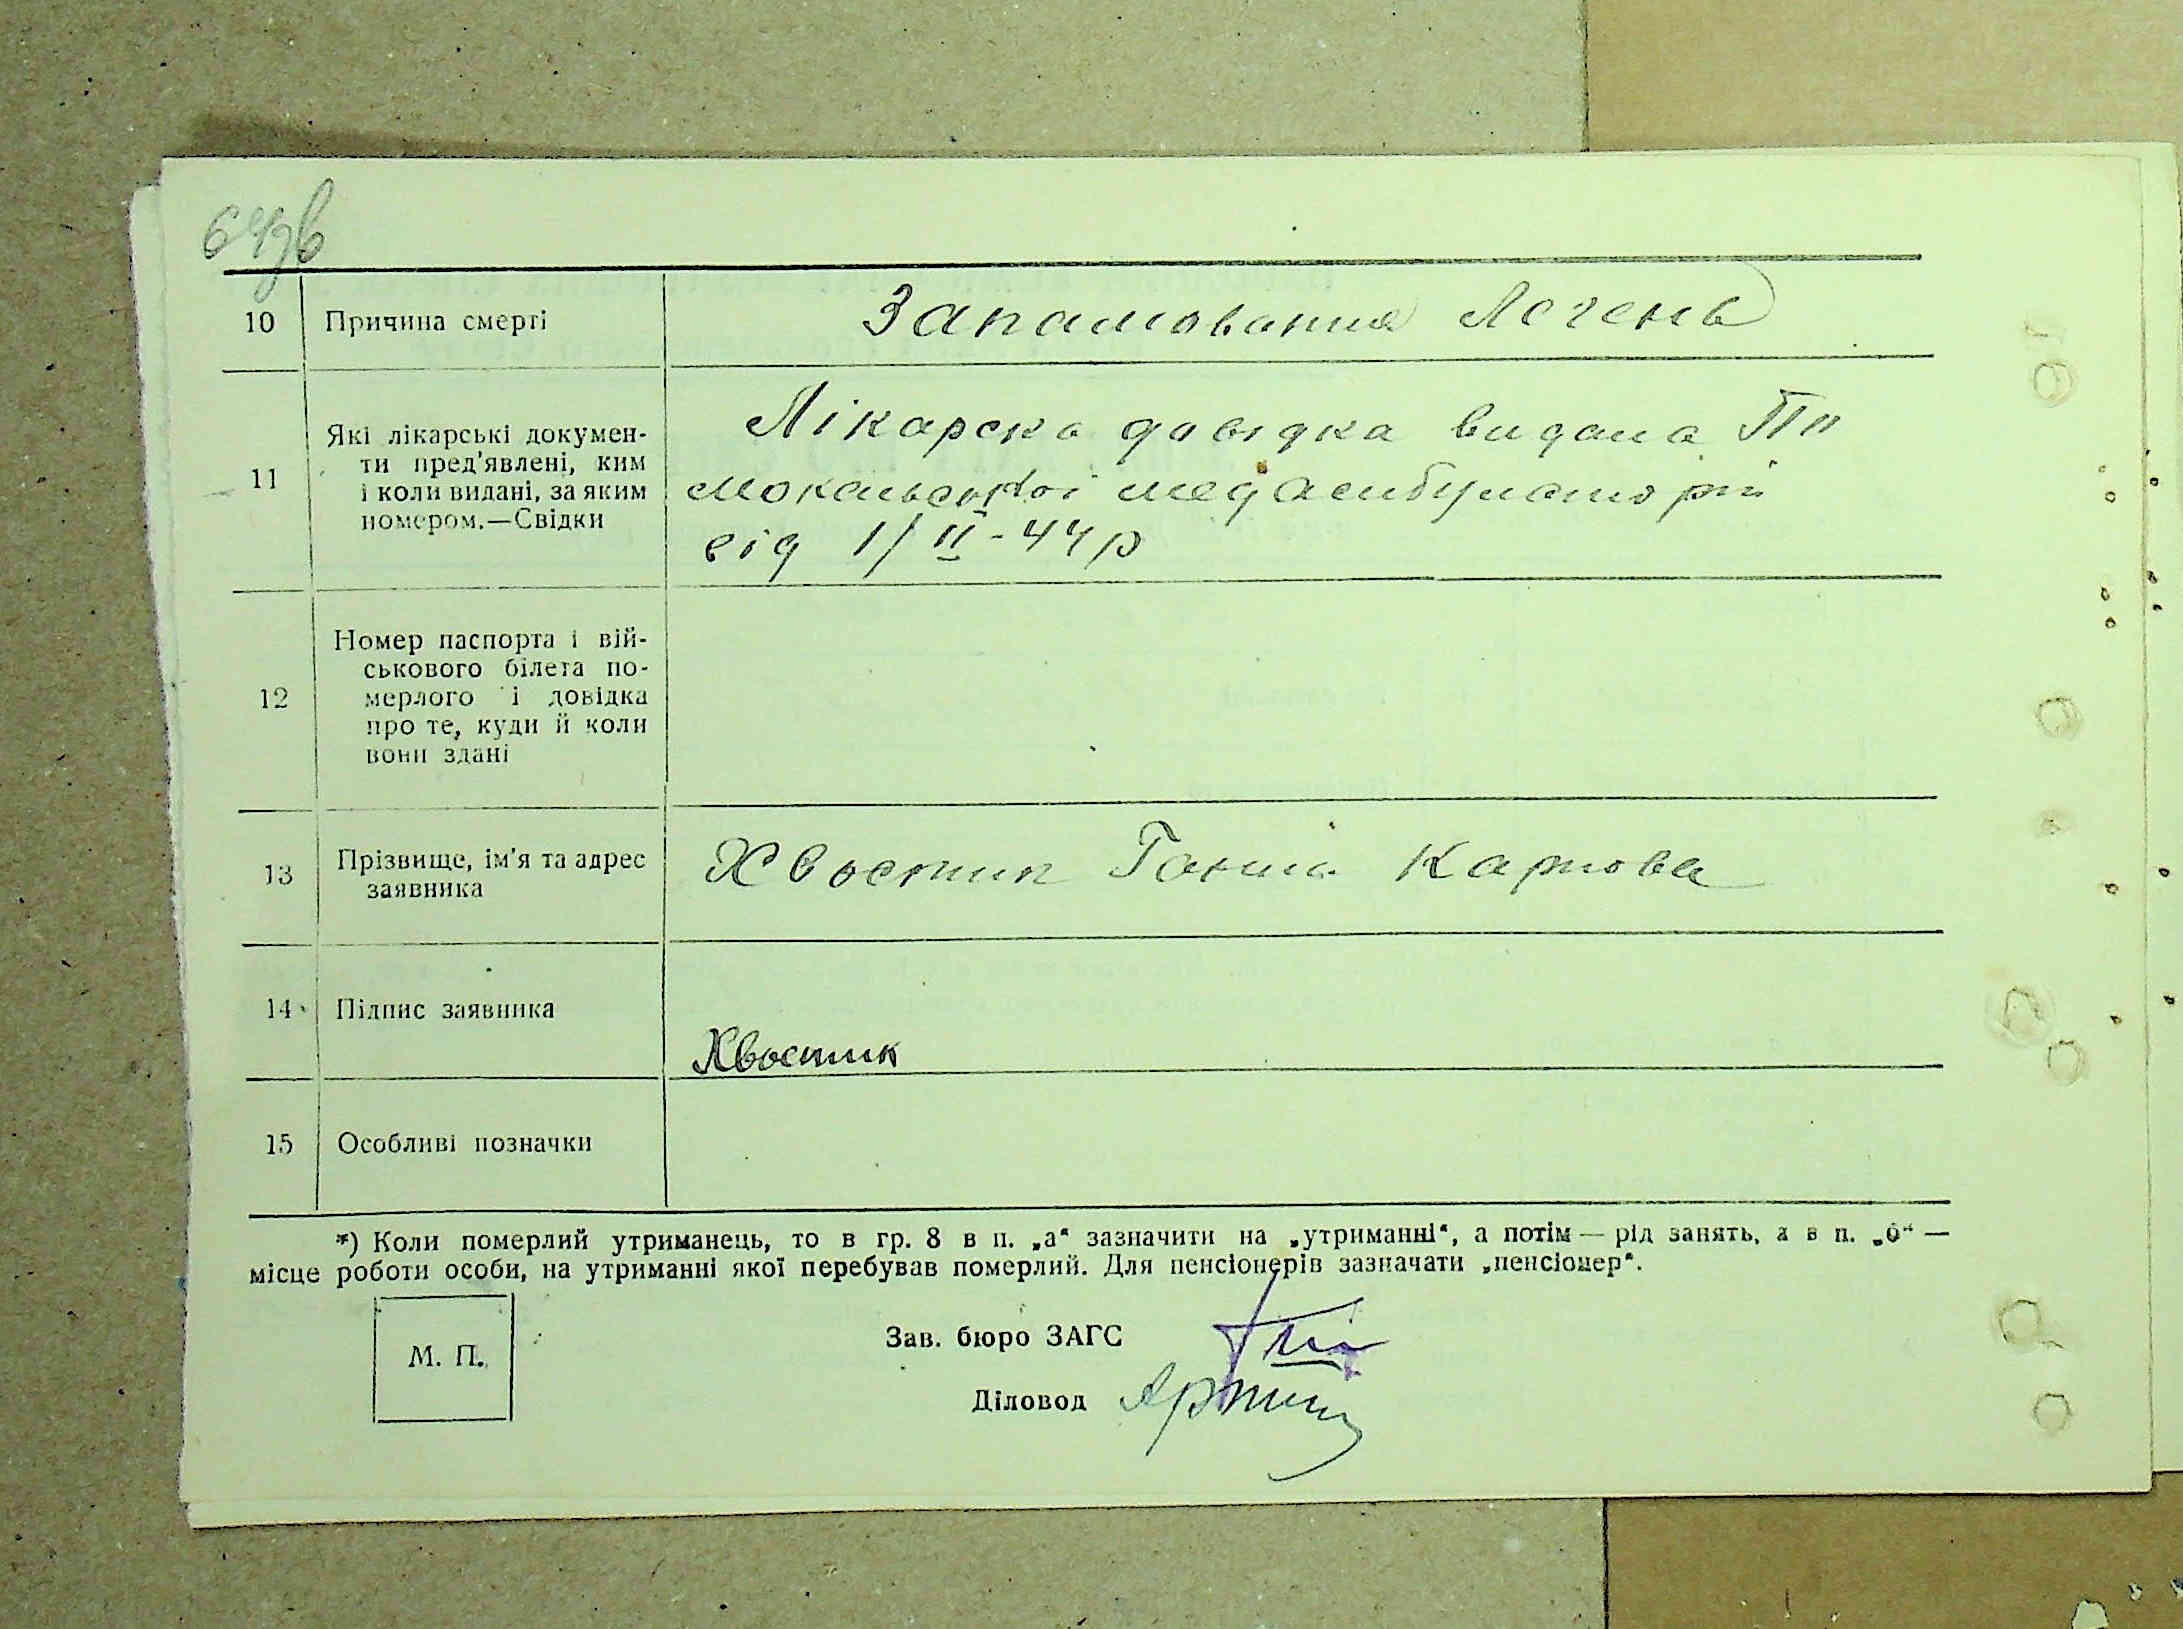 64зв
10 Причина смерті Запалювання Легень
11 Які лікарські докумен-
ти пред'явлені, ким
і коли видані, за яким
номером.—Свідки
Лікарска довідка видана
медамбулаторії
від 1/II-44р
12 Номер паспорта і вій-
ськового білета по-
мерлого і довідка
про те, куди й коли
вони здані
13 Прізвище, ім'я та адрес
заявника
Хвостик Ганна Карпова
14 Підпис заявника
Хвостик
15 Особливі позначки
*) Коли померлий утриманець, то в гр. 8 в п. „а“ зазначити на „утриманні“, а потім — рід занять, а в п. „б“ —
місце роботи особи, на утриманні якої перебував померлий. Для пенсіонерів зазначати „пенсіонер“.
М. П.
Зав. бюро ЗАГС
Діловод